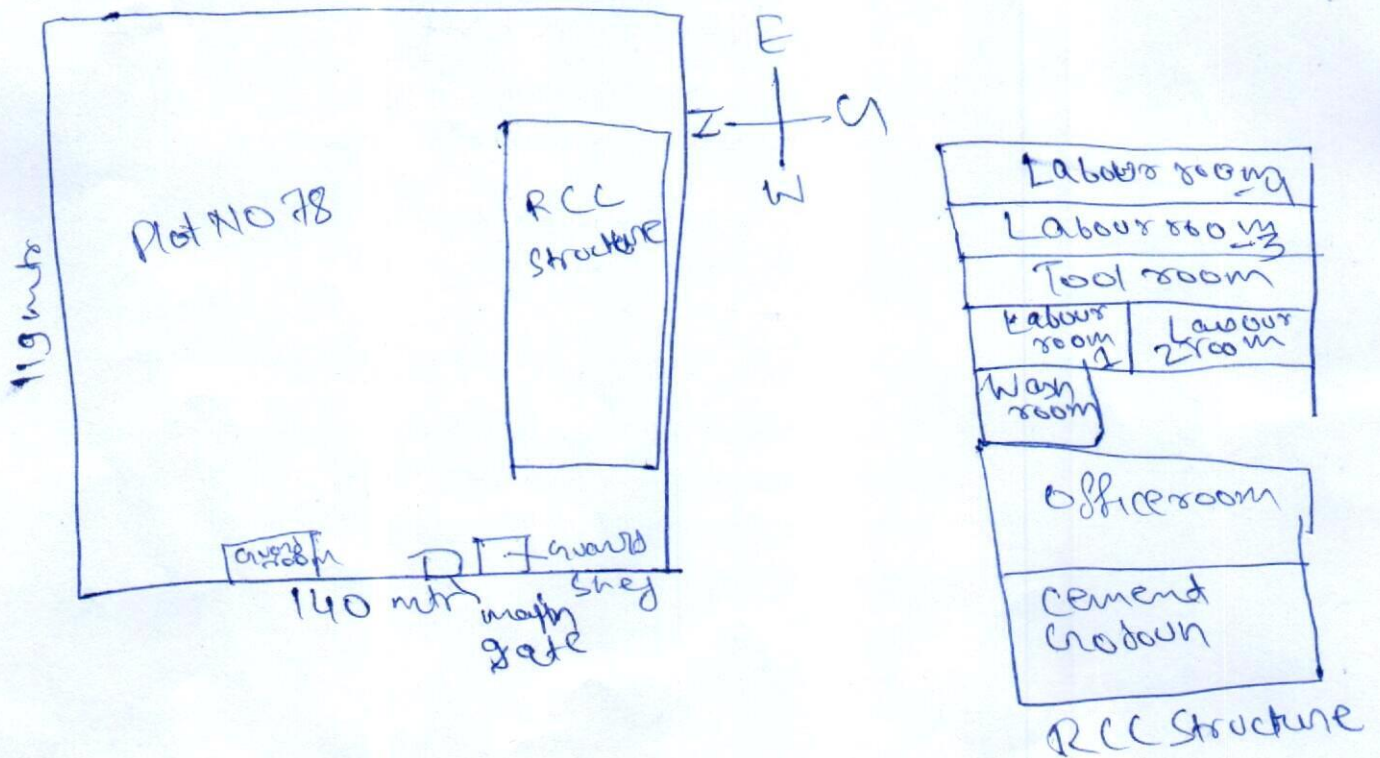 E
N
S
W
Plot NO 78
RCC
structure
119 mtr
Guard
room
140 mtr
main
gate
Guard
Shed
Labour room 4
Labour room 3
Tool room
Labour
room
1
Labour
2 room
Wash
room
office room
cemend
Godoun
RCC Structure